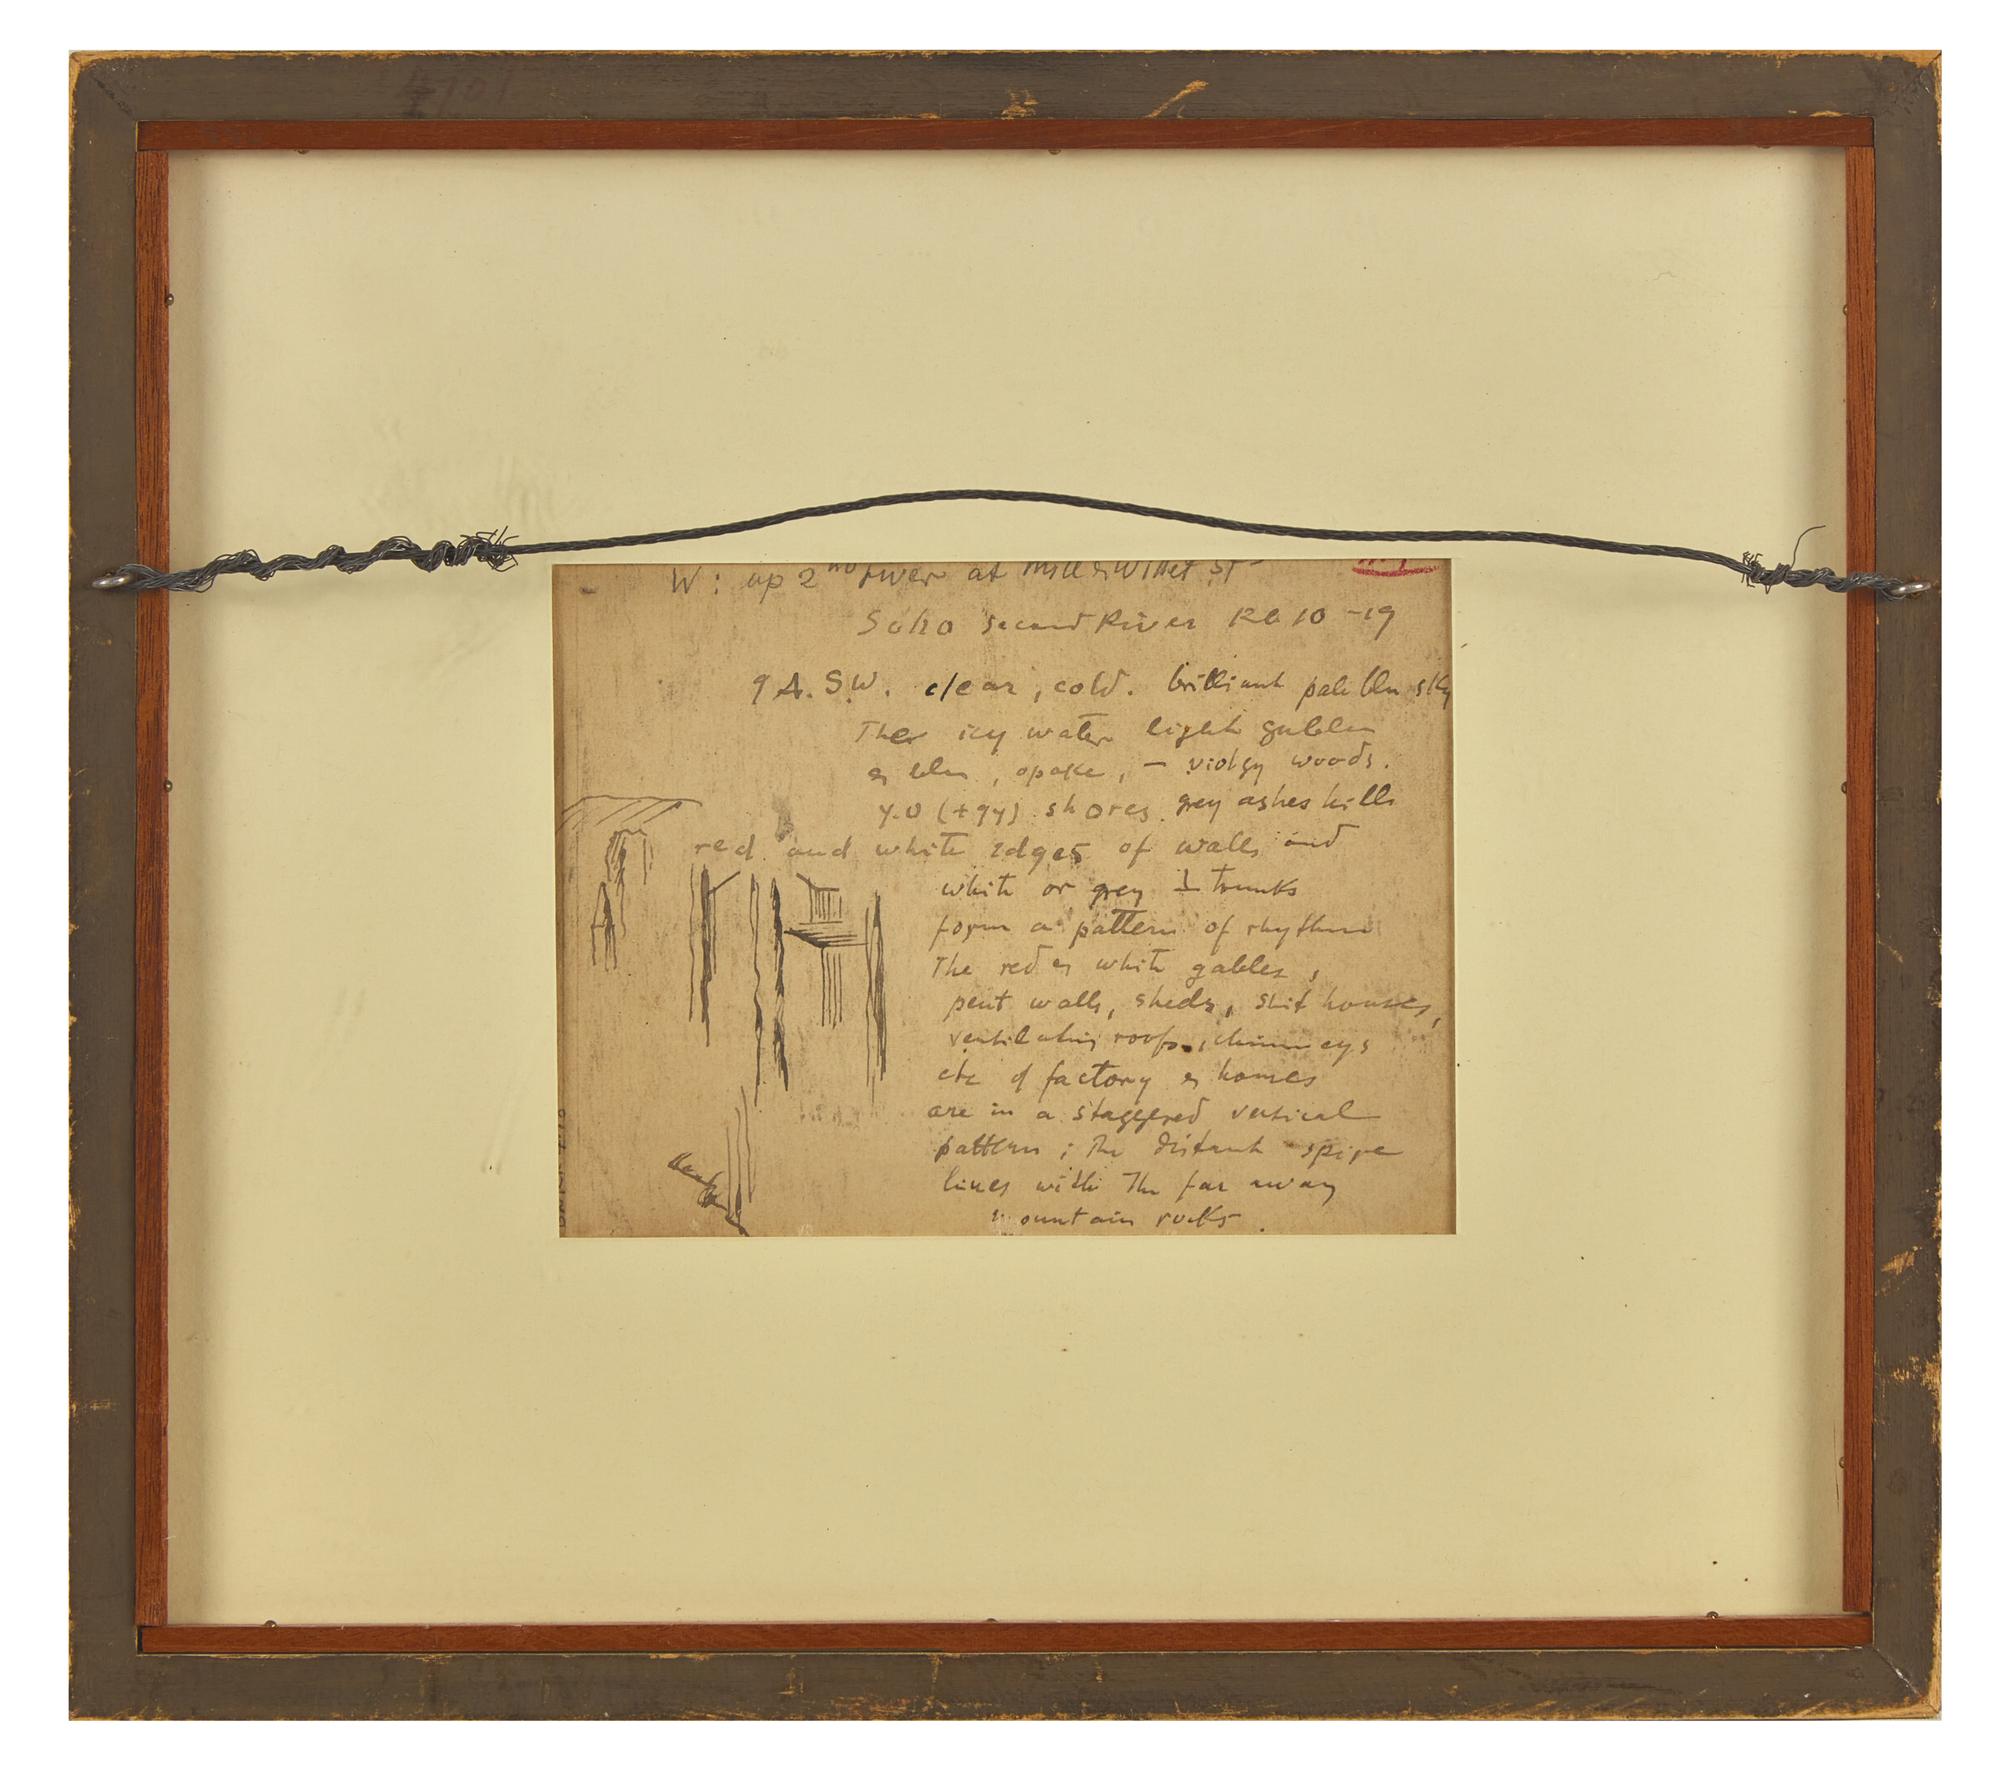 W: up 2nd River at Mill & Willet St
Soho second River R6 10 -19
9 A. SW. clear, cold. brilliant pale blu sky
The icy water light
& blu, opake, - violgy woods.
Y.O (+gy) shores. grey ashes hills
red and white edges of walls and
white or grey ⊥ trunks
form a pattern of rhythm
The red & white gables,
pent walls, sheds, shit houses,
ventilating roofs, chimneys
etc of factory & homes
are in a staggered vertical
pattern; The distant spire
lines with The far away
mountain rocks.